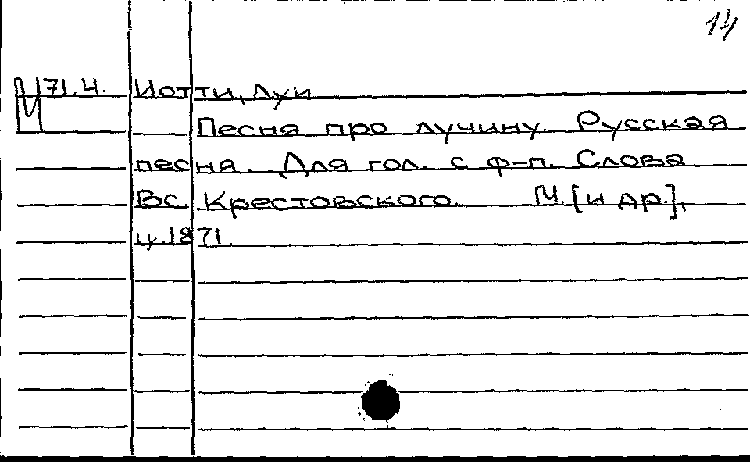 14
М 71.4. Иотти, Луи
Песня про лучину. Русская
песня. Для гол. с ф-п. Слова
Вс. Крестовского. М. [и др.],
ц. 1871.